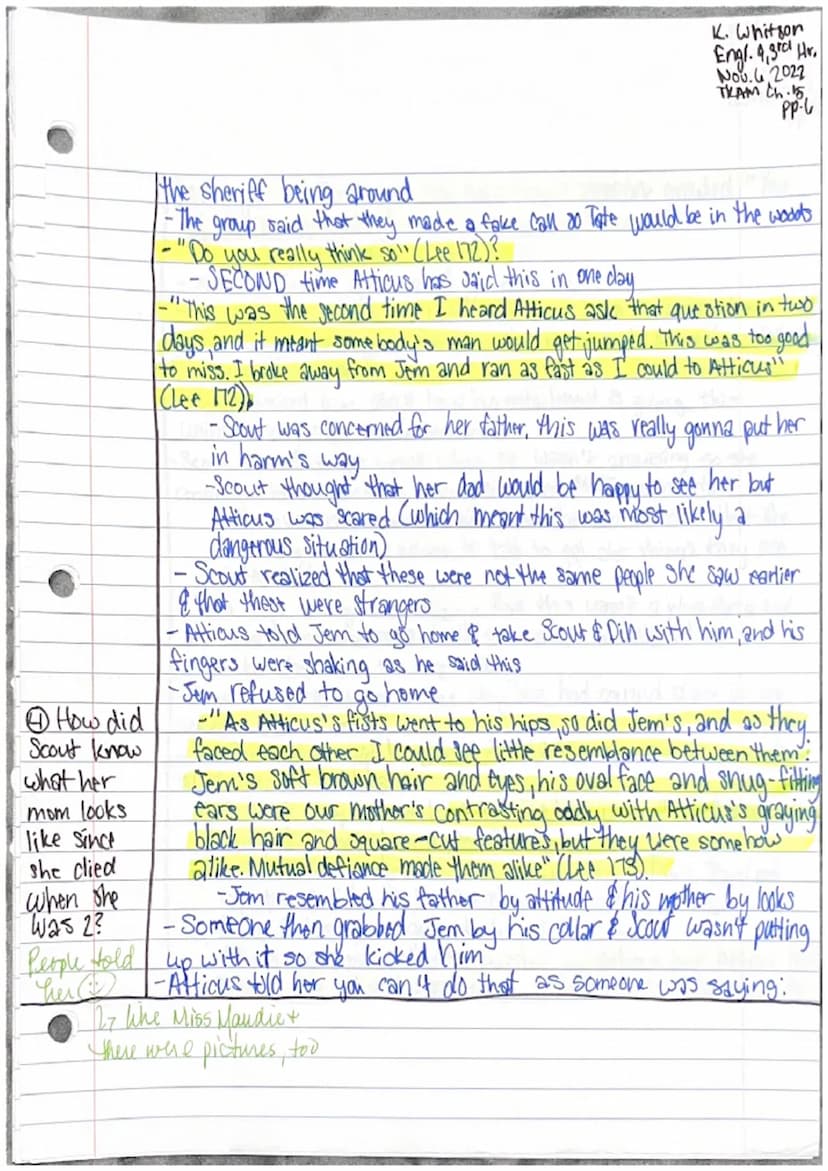 K. Whitson
Engl. 9, 3rd Hr.
Nov. 6, 2022
TKAM Ch. 15
pp. 6
the sheriff being around
- The group said that they made a fake call so Tate would be in the woods
- "Do you really think so" (Lee 172)?
- SECOND time Atticus has said this in one day
- "This was the second time I heard Atticus ask that question in two
days, and it meant somebody's man would get jumped. This was too good
to miss. I broke away from Jem and ran as fast as I could to Atticus"
(Lee 172).
- Scout was concerned for her father, this was really gonna put her
in harm's way
- Scout thought that her dad would be happy to see her but
Atticus was scared (which meant this was most likely a
dangerous situation)
- Scout realized that these were not the same people she saw earlier
& that these were strangers
- Atticus told Jem to go home & take Scout & Dill with him, and his
fingers were shaking as he said this
- Jem refused to go home
- "As Atticus's fists went to his hips, so did Jem's, and as they
faced each other I could see little resemblance between them:
Jem's soft brown hair and eyes, his oval face and snug-fitting
ears were our mother's contrasting oddly with Atticus's graying
black hair and square-cut features, but they were somehow
alike. Mutual defiance made them alike" (Lee 173).
- Jem resembled his father by attitude & his mother by looks
- Someone then grabbed Jem by his collar & Scout wasn't putting
up with it so she kicked him
- Atticus told her you can't do that as someone was saying:
④ How did
Scout know
what her
mom looks
like since
she died
when she
was 2?
People told
her ☺
↳ like Miss Maudie +
there were pictures, too